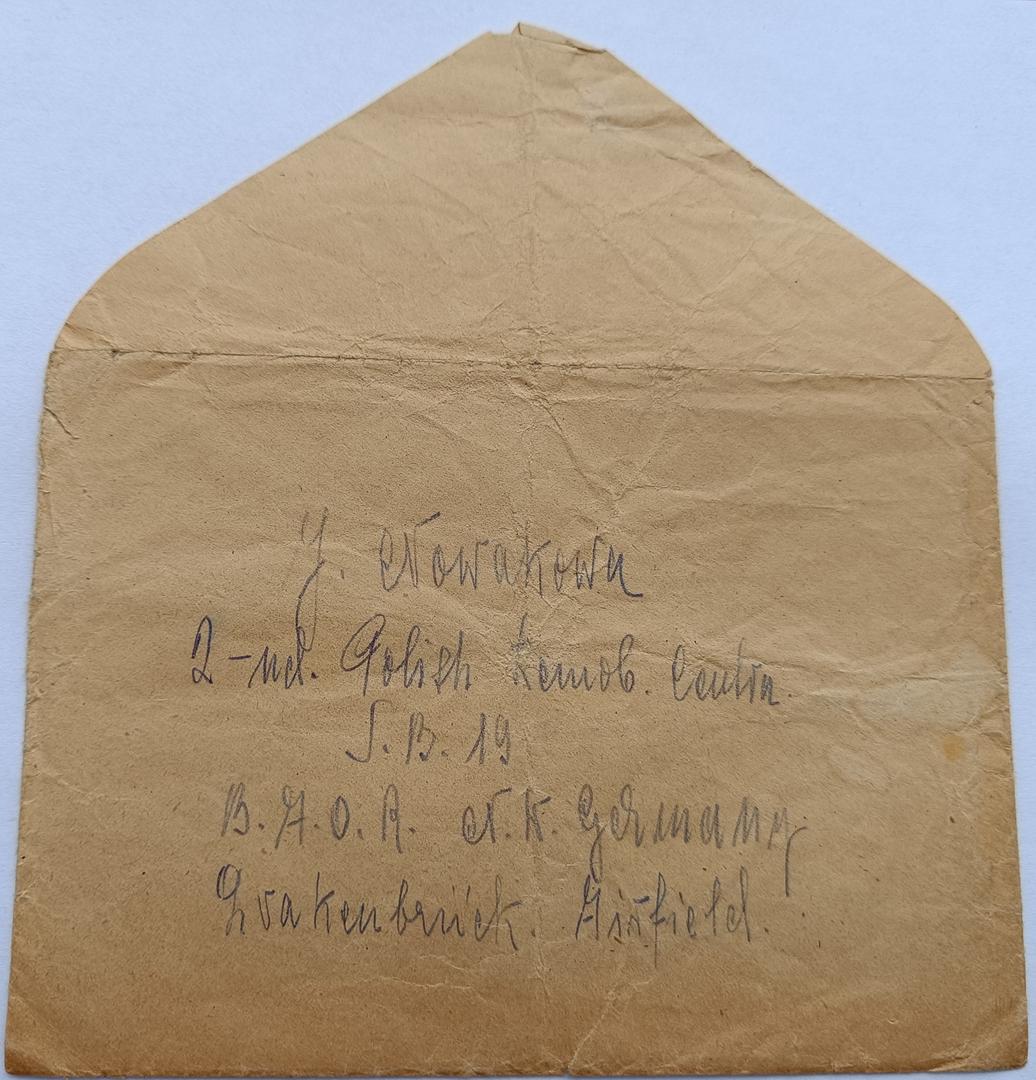 J. Nowakowa
2-nd. Polish Demob. Centra.
S.B. 19
B.A.O.R. N.K. Germany
Quakenbrück. Airfield.